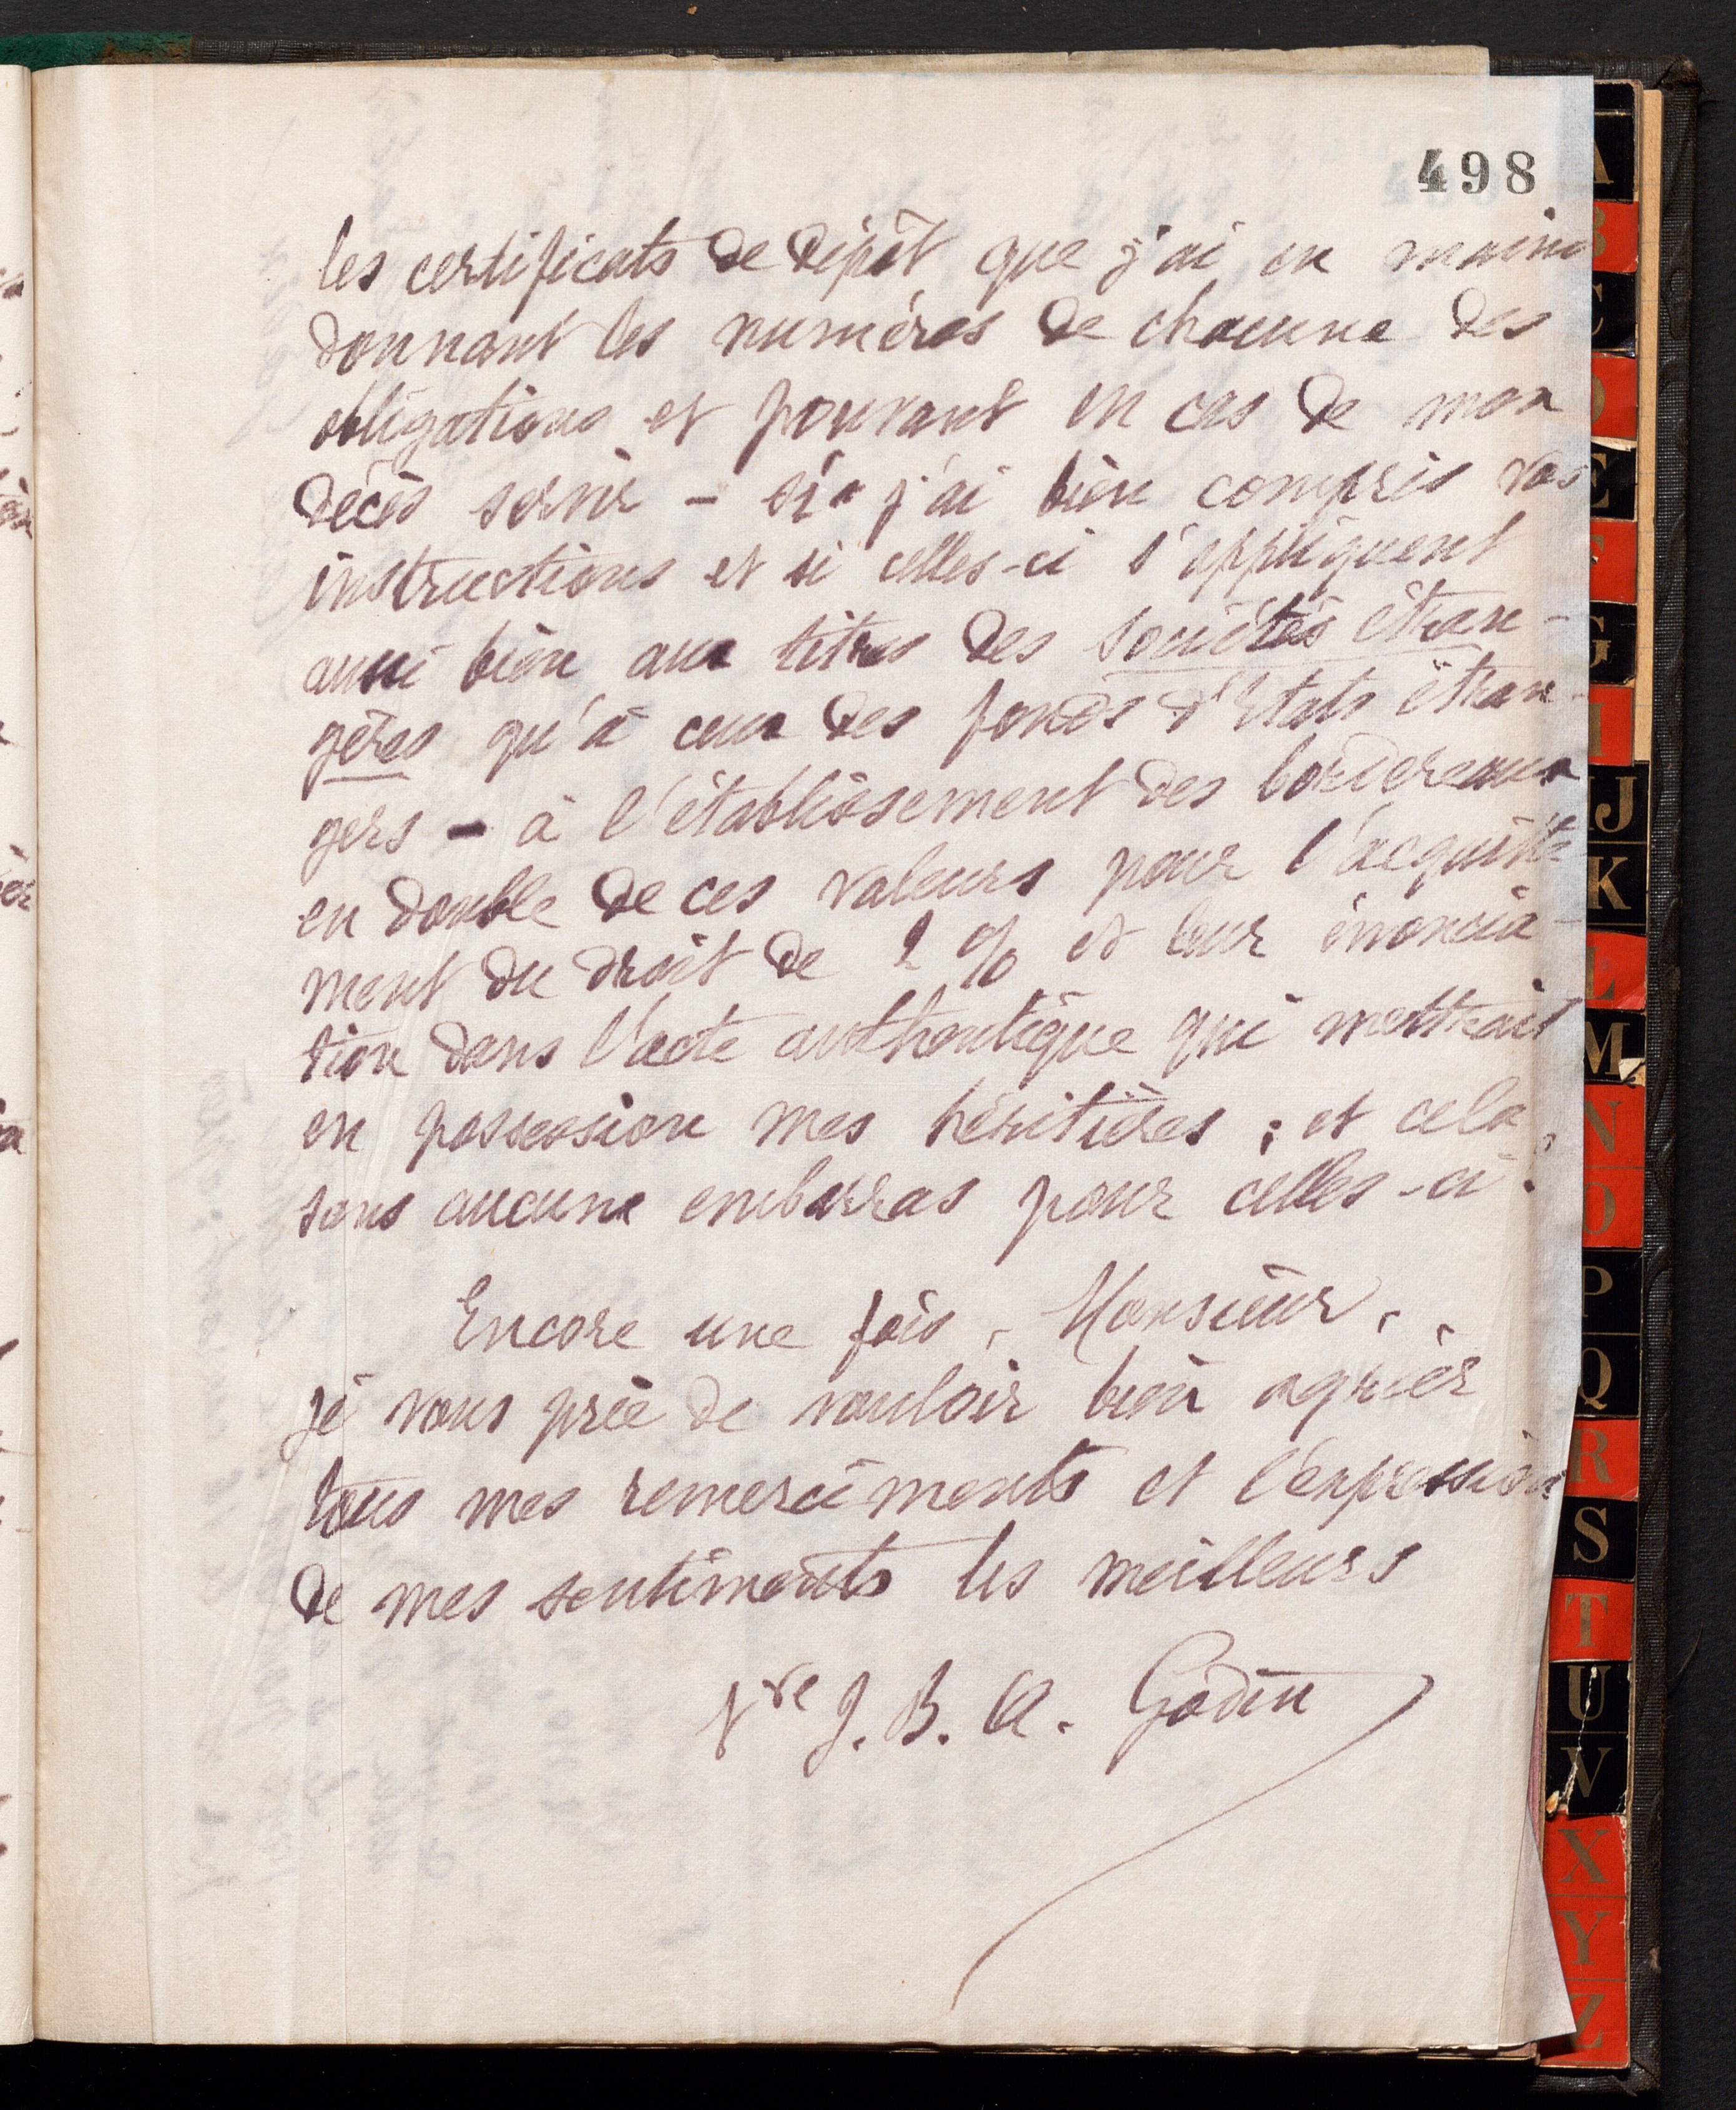 498
les certificats de dépôt que j'ai en mains
donnant les numéros de chacune des
obligations et pouvant en cas de mon
décès servir - si j'ai bien compris vos
instructions et si celles-ci s'appliquent
aussi bien aux titres des sociétés étran-
gères qu'à ceux des fonds d'Etats étran-
gers - à l'établissement des bordereaux
en double de ces valeurs pour l'acquitte
ment du droit de 2 % et leur énoncia-
tion dans l'acte authentique qui mettrait
en possession mes héritières ; et cela,
sans aucune embarras pour celles-ci.
Encore une fois, Monsieur,
je vous prie de vouloir bien agréer
tous mes remerciments et l'expression
de mes sentiments les meilleurs
Vve J. B. A. Godin
A
B
C
D
E
F
G
J
K
L
M
N
O
P
Q
R
S
T
U
V
X
Y
Z